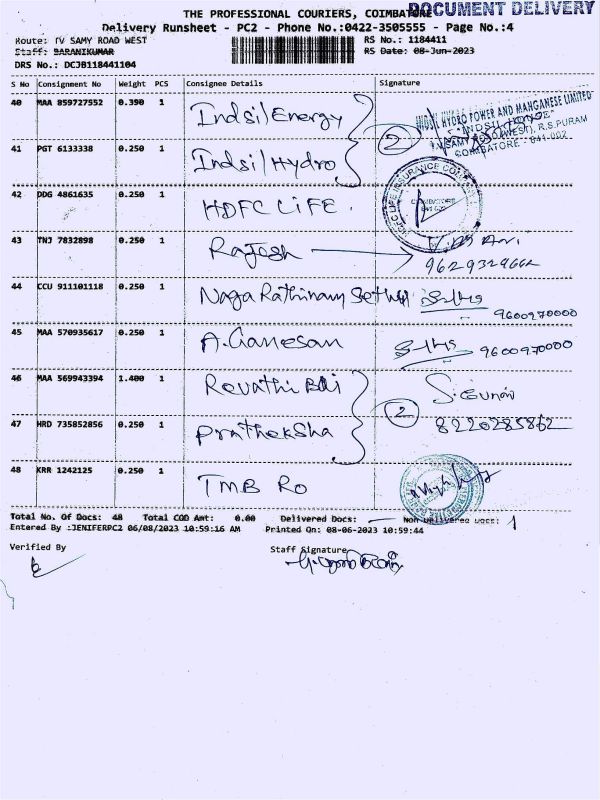 THE PROFESSIONAL COURIERS, COIMBATORE
DOCUMENT DELIVERY
Delivery Runsheet - PC2 - Phone No.:0422-3505555 - Page No.:4
Route: TV SAMY ROAD WEST
RS No.: 1184411
Staff: BARANIKUMAR
RS Date: 08-Jun-2023
DRS No.: DCJB118441104
S No Consignment No Weight PCS Consignee Details Signature
40 MAA 859727552 0.390 1 Indsil Energy
INDSIL HYDRO POWER AND MANGANESE LIMITED
"INDSIL HOUSE"
T.V. SAMY ROAD (WEST), R.S.PURAM
COIMBATORE - 641 002
41 PGT 6133338 0.250 1 Indsil Hydro
2
42 DDG 4861635 0.250 1 HDFC LIFE.
43 TNJ 7832898 0.250 1 Rajesh
9629329662
44 CCU 911101118 0.250 1 Naga Rathinam
9600970000
45 MAA 570935617 0.250 1 A.Ganesan
9600970000
46 MAA 569943394 1.400 1 Revathi Bai
2
47 HRD 735852856 0.250 1 Pratheksha
8220285862
48 KRR 1242125 0.250 1 TMB RO
Total No. Of Docs: 48 Total COD Amt: 0.00 Delivered Docs: Non Delivered Docs: 1
Entered By :JENIFERPC2 06/08/2023 10:59:16 AM Printed On: 08-06-2023 10:59:44
Verified By
Staff Signature